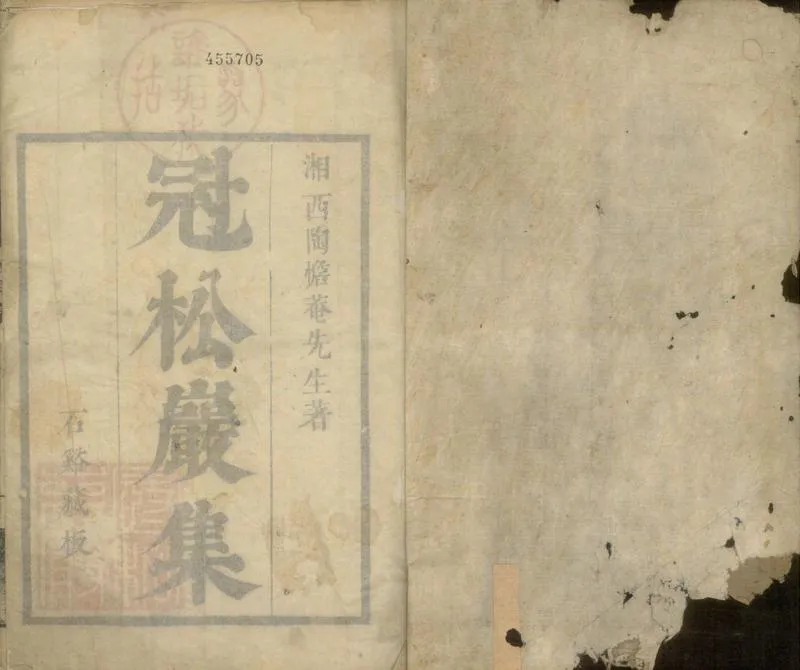 455705
湘西陶憺菴先生著
冠松巖集
石谿藏板